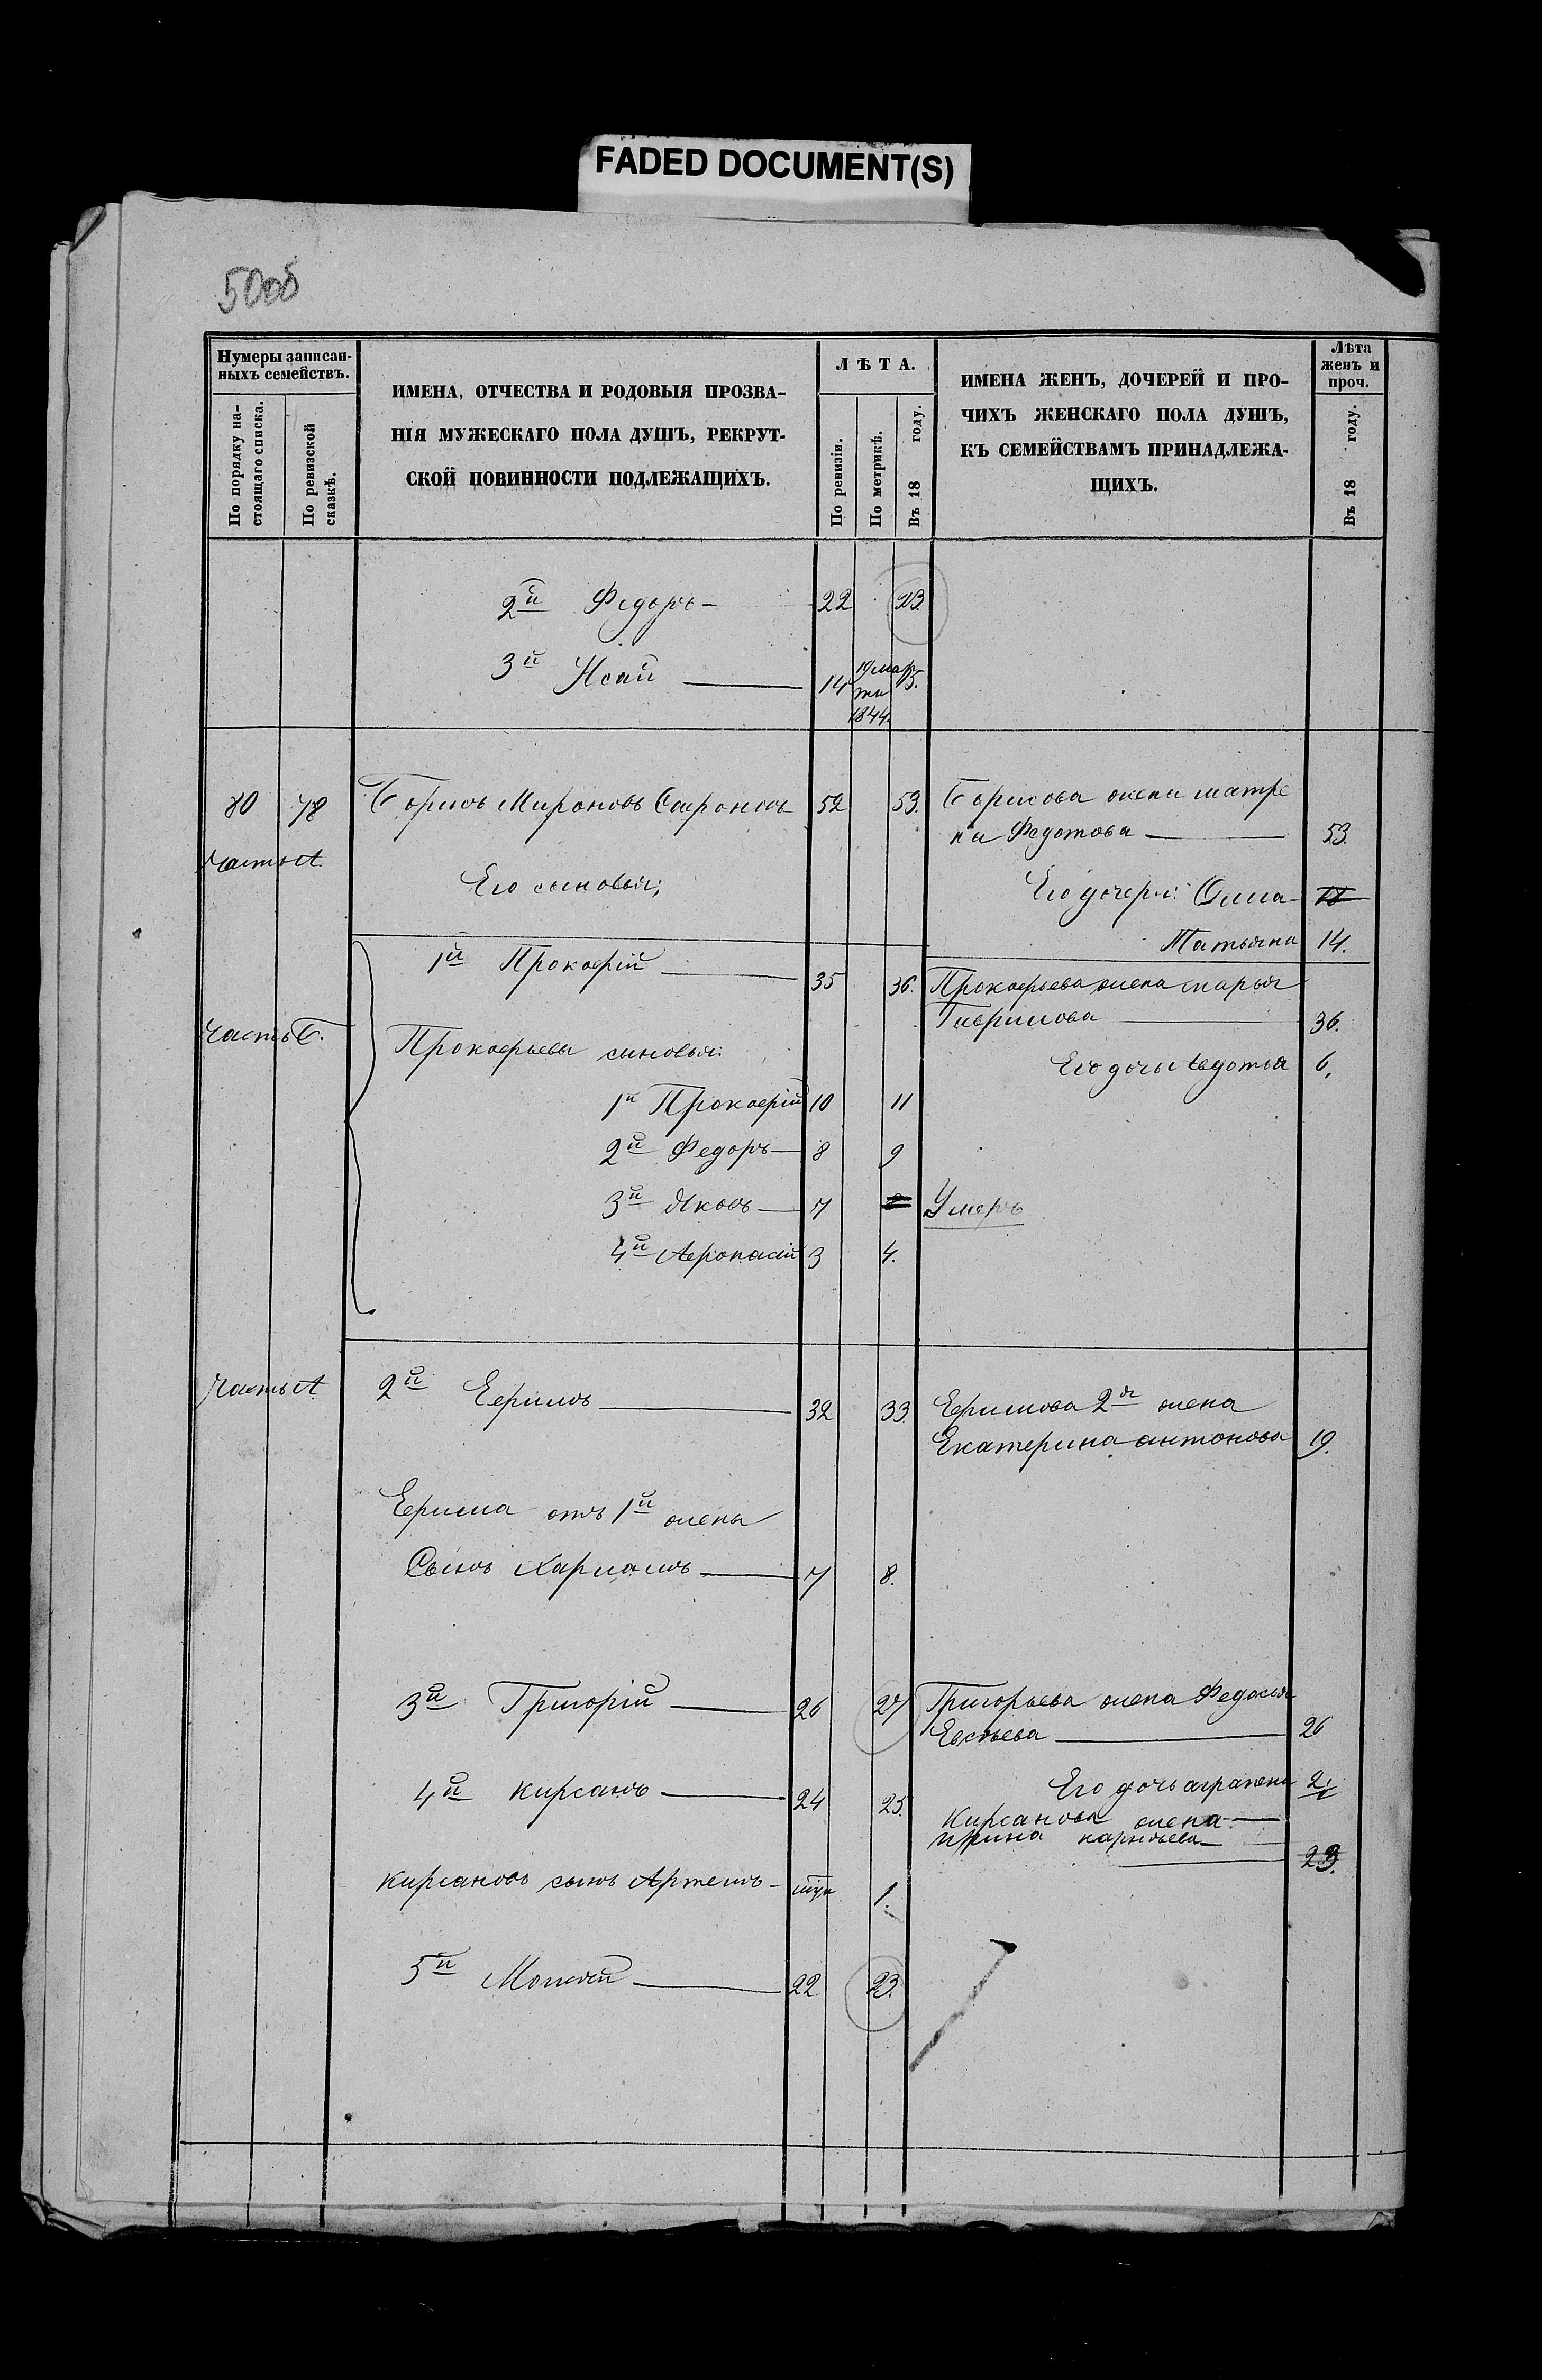 FADED DOCUMENT(S)
50об
Нумеры записан-
ныхъ семействъ.
По порядку на-
стоящаго списка.
По ревизской
сказкѣ.
ИМЕНА, ОТЧЕСТВА И РОДОВЫЯ ПРОЗВА-
НІЯ МУЖЕСКАГО ПОЛА ДУШЪ, РЕКРУТ-
СКОЙ ПОВИННОСТИ ПОДЛЕЖАЩИХЪ.
ЛѢТА.
По ревизіи.
По метрикѣ.
Въ 18 году.
ИМЕНА ЖЕНЪ, ДОЧЕРЕЙ И ПРО-
ЧИХЪ ЖЕНСКАГО ПОЛА ДУШЪ,
КЪ СЕМЕЙСТВАМЪ ПРИНАДЛЕЖА-
ЩИХЪ.
Лѣта
женъ и
проч.
Въ 18 году.
2й Федоръ 22 23
3й Исай 14 19 мар 15.
та
1844.
80 78 Борисъ Мироновъ 52 53. Борисова жена матре
на Федотова 53.
Часть А.
Его сыновья; Его дочери:
Татьяна 14.
1й Прокофій 35 36. Прокофьева жена марья
Гаврилова 36.
Часть Б.
Прокофьевы сыновья: Его дочь Авдотья 6.
1й Прокофій 10 11
2й Федоръ 8 9
3й Яковъ 7 Умеръ
4й Афонасій 3 4.
Часть А 2й Ефимъ 32 33. Ефимова 2я жена
Екатерина антонова 19.
Ефима отъ 1й жены
Сынъ Харламъ 7 8.
3й Григорій 26 27 Григорьева жена Федосья
26
4й Кирсанъ 24 25. Его дочь аграпена 2.
Кирсанова жена
23.
Кирсановъ сынъ Артемъ 1.
5й Мокей 22 23.